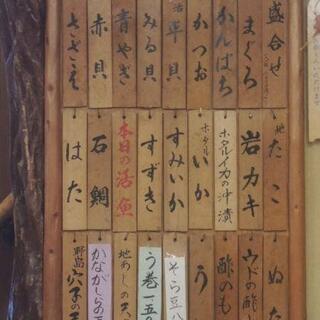 盛合せ
まぐろ
かんぱち
かつお
活
平貝
みる貝
青やぎ
赤貝
さざえ
地
たこ
岩カキ
ホタルイカの沖漬
ホタル
いか
すみいか
すずき
本日の活魚
石鯛
はた
ぬた
ウドの酢
酢のも
う
そら豆
う巻一五
地あじの
かながしらの天
野島
穴子の天